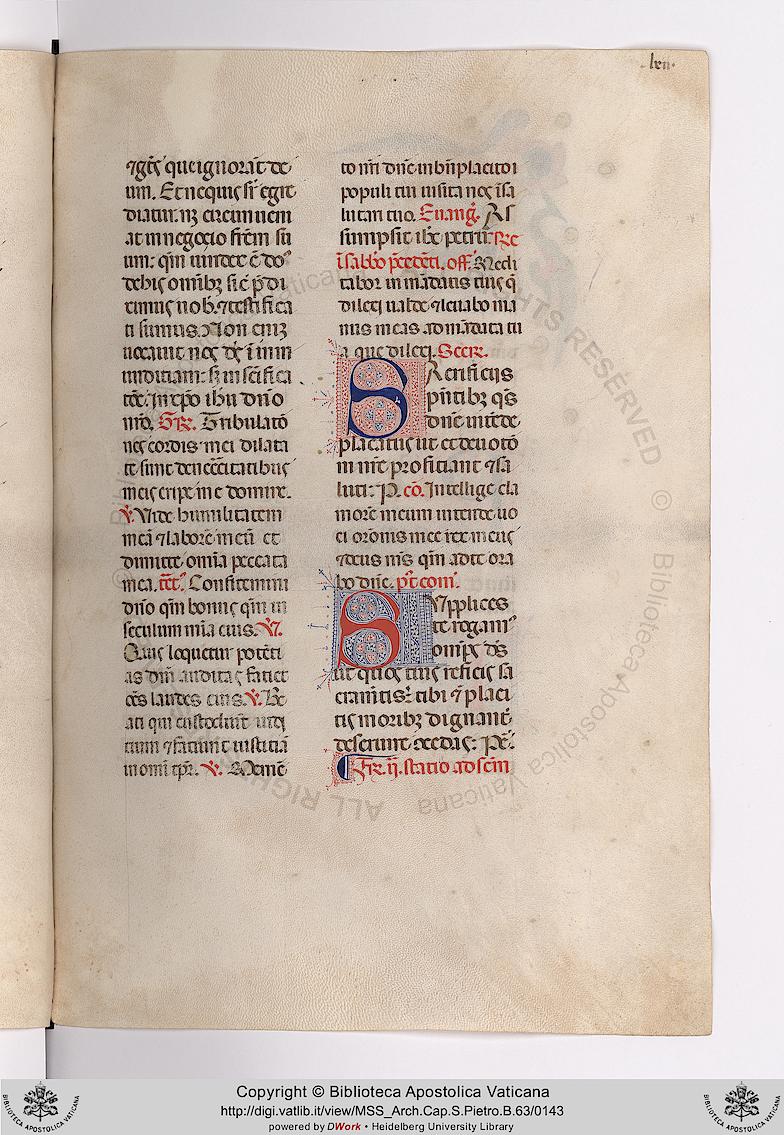 lxii.
⁊ gẽtes que ignorãt de
um. Et ne quis sr̃ egre
diatur. nꝫ circumueni
at in negocio frẽm su
um: qm̃ uindex ẽ doꝰ
de hiis omĩbꝫ sic̃ p̃di
ximus uob̃. ⁊ testifica
ti sumus. Non enĩ
uocauit nos dẽ i imm
mditiam: sꝫ in scĩfica
tõe. In xp̃o ihũ dño
nr̃o. Gr̃. Tribulatõ
nes cordis mei dilata
te sunt de nccc̃itatibus
meis eripe me domine.
℣. Vide humilitatem
meã ⁊ laborẽ meũ et
dimitte omĩa peccata
mea. tc̃t. Confitemini
dño qm̃ bonus qm̃ in
seculum mĩa eius. ℣.
Quis loquetur potẽti
as dñi auditas faciet
oẽs laudes eius. ℣. Be
ati qui custodiũt iudi
cium ⁊ faciunt iusticiã
in omĩ tp̃r. ℣. Memẽ
to nr̃i dñe in bñplacito
populi tui uisita nos ĩ sa
lutari tuo. Euang̃. As
sumpsit ihc̃ petrũ. Re
ĩ sabbõ p̃cedẽti. off̃. Medi
tabor in mãdatis tuis q̃
dilexi ualde ⁊ leuabo ma
nus meas ad mãdata tu
a que dilexi. Secr̃.
Sacrificiis
p̃ntibꝫ q̃s
dñe intẽde
placatus ut et deuotõi
ni nr̃e proficiant ⁊ sa
luti: P. cõ. Intellige cla
morẽ meum intende uo
ci orõnis mee rex meus
⁊ deus mẽs qm̃ ad te ora
bo dñe. p̃t com̃.
Supplices
te rogamꝰ
omp̃s dẽs
ut quos tuis reficis sa
cram̃tis: tibi ⁊ placi
tis moribꝫ dignant̃
deseruire cõcedas: Pẽ.
Fr̃. ij. statio ad scm̃
Copyright © Biblioteca Apostolica Vaticana
http://digi.vatlib.it/view/MSS_Arch.Cap.S.Pietro.B.63/0143
powered by DWork • Heidelberg University Library